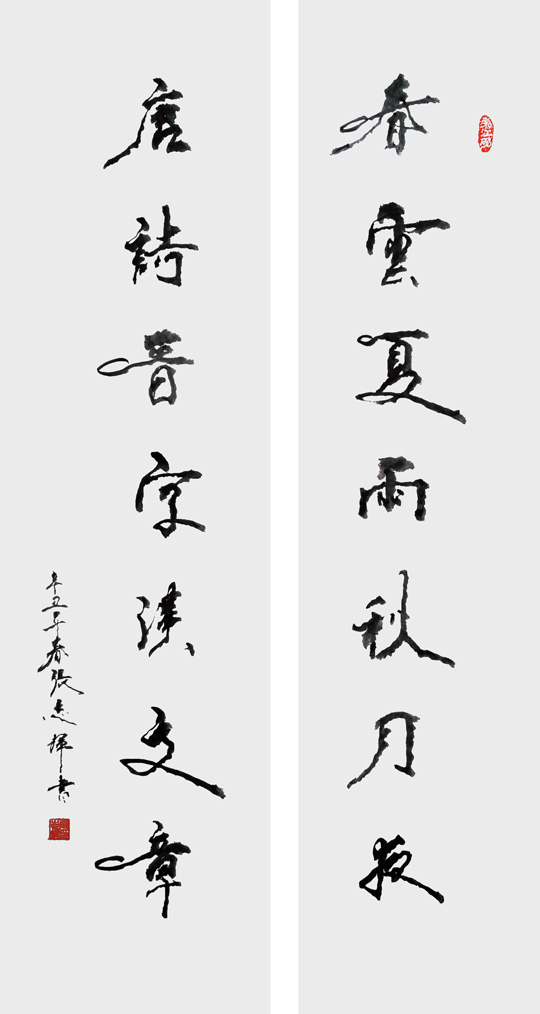 春雲夏雨秋月夜
唐詩晉字漢文章
辛丑年春張志輝書